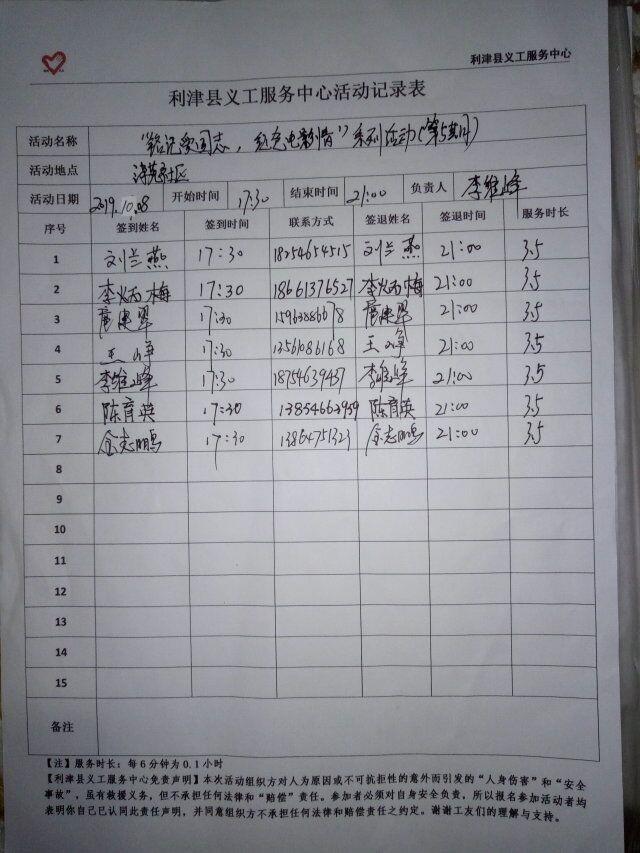 利津县义工服务中心
利津县义工服务中心活动记录表
活动名称 "铭记家国志，红色电影情"系列活动(第5期)
活动地点 社区
活动日期 2019.10.08 开始时间 17:30 结束时间 21:00 负责人 李维峰
序号 签到姓名 签到时间 联系方式 签退姓名 签退时间 服务时长
1 刘兰燕 17:30 18254654515 刘兰燕 21:00 3.5
2 李炳梅 17:30 18661376527 李炳梅 21:00 3.5
3 17:30 21:00 3.5
4 王峥 17:30 13561086168 王峥 21:00 3.5
5 李维峰 17:30 18754639437 李维峰 21:00 3.5
6 陈育英 17:30 13854663959 陈育英 21:00 3.5
7 金志鹏 17:30 13864751323 金志鹏 21:00 3.5
8
9
10
11
12
13
14
15
备注
【注】服务时长：每6分钟为0.1小时
【利津县义工服务中心免责声明】本次活动组织方对人为原因或不可抗拒性的意外而引发的"人身伤害"和"安全
事故"，虽有救援义务，但不承担任何法律和"赔偿"责任。参加者必须对自身安全负责，所以报名参加活动者均
表明你自己已认同此责任声明，并同意组织方不承担任何法律和赔偿责任之约定。谢谢工友们的理解与支持。